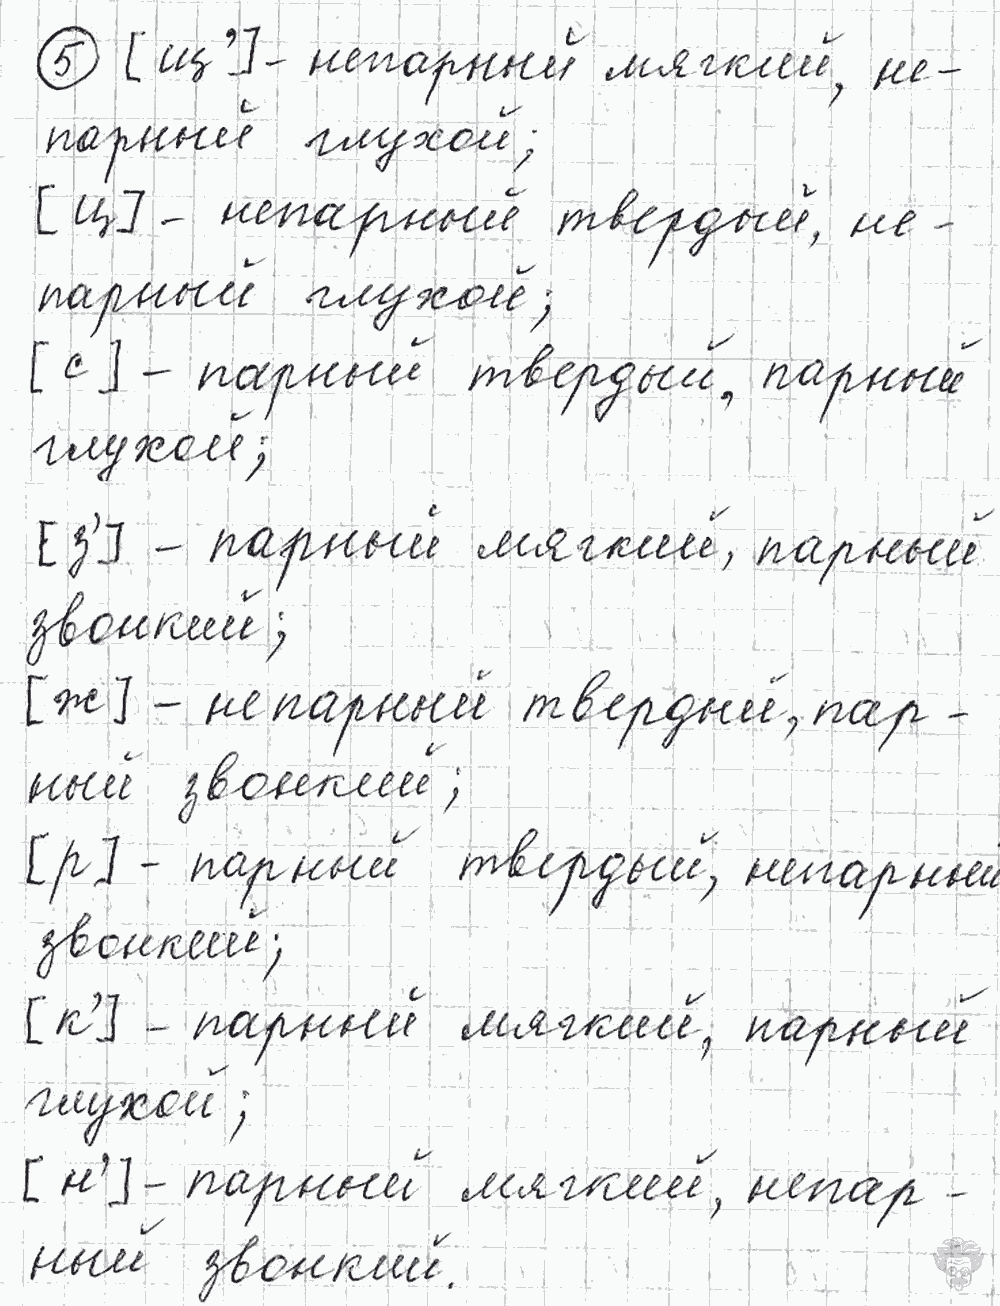 5 [щ’] – непарный мягкий, не-
парный глухой;
[ц] – непарный твердый, не-
парный глухой;
[с] – парный твердый, парный
глухой;
[з’] – парный мягкий, парный
звонкий;
[ж] – непарный твердый, пар-
ный звонкий;
[р] – парный твердый, непарный
звонкий;
[к’] – парный мягкий, парный
глухой;
[н’] – парный мягкий, непар-
ный звонкий.